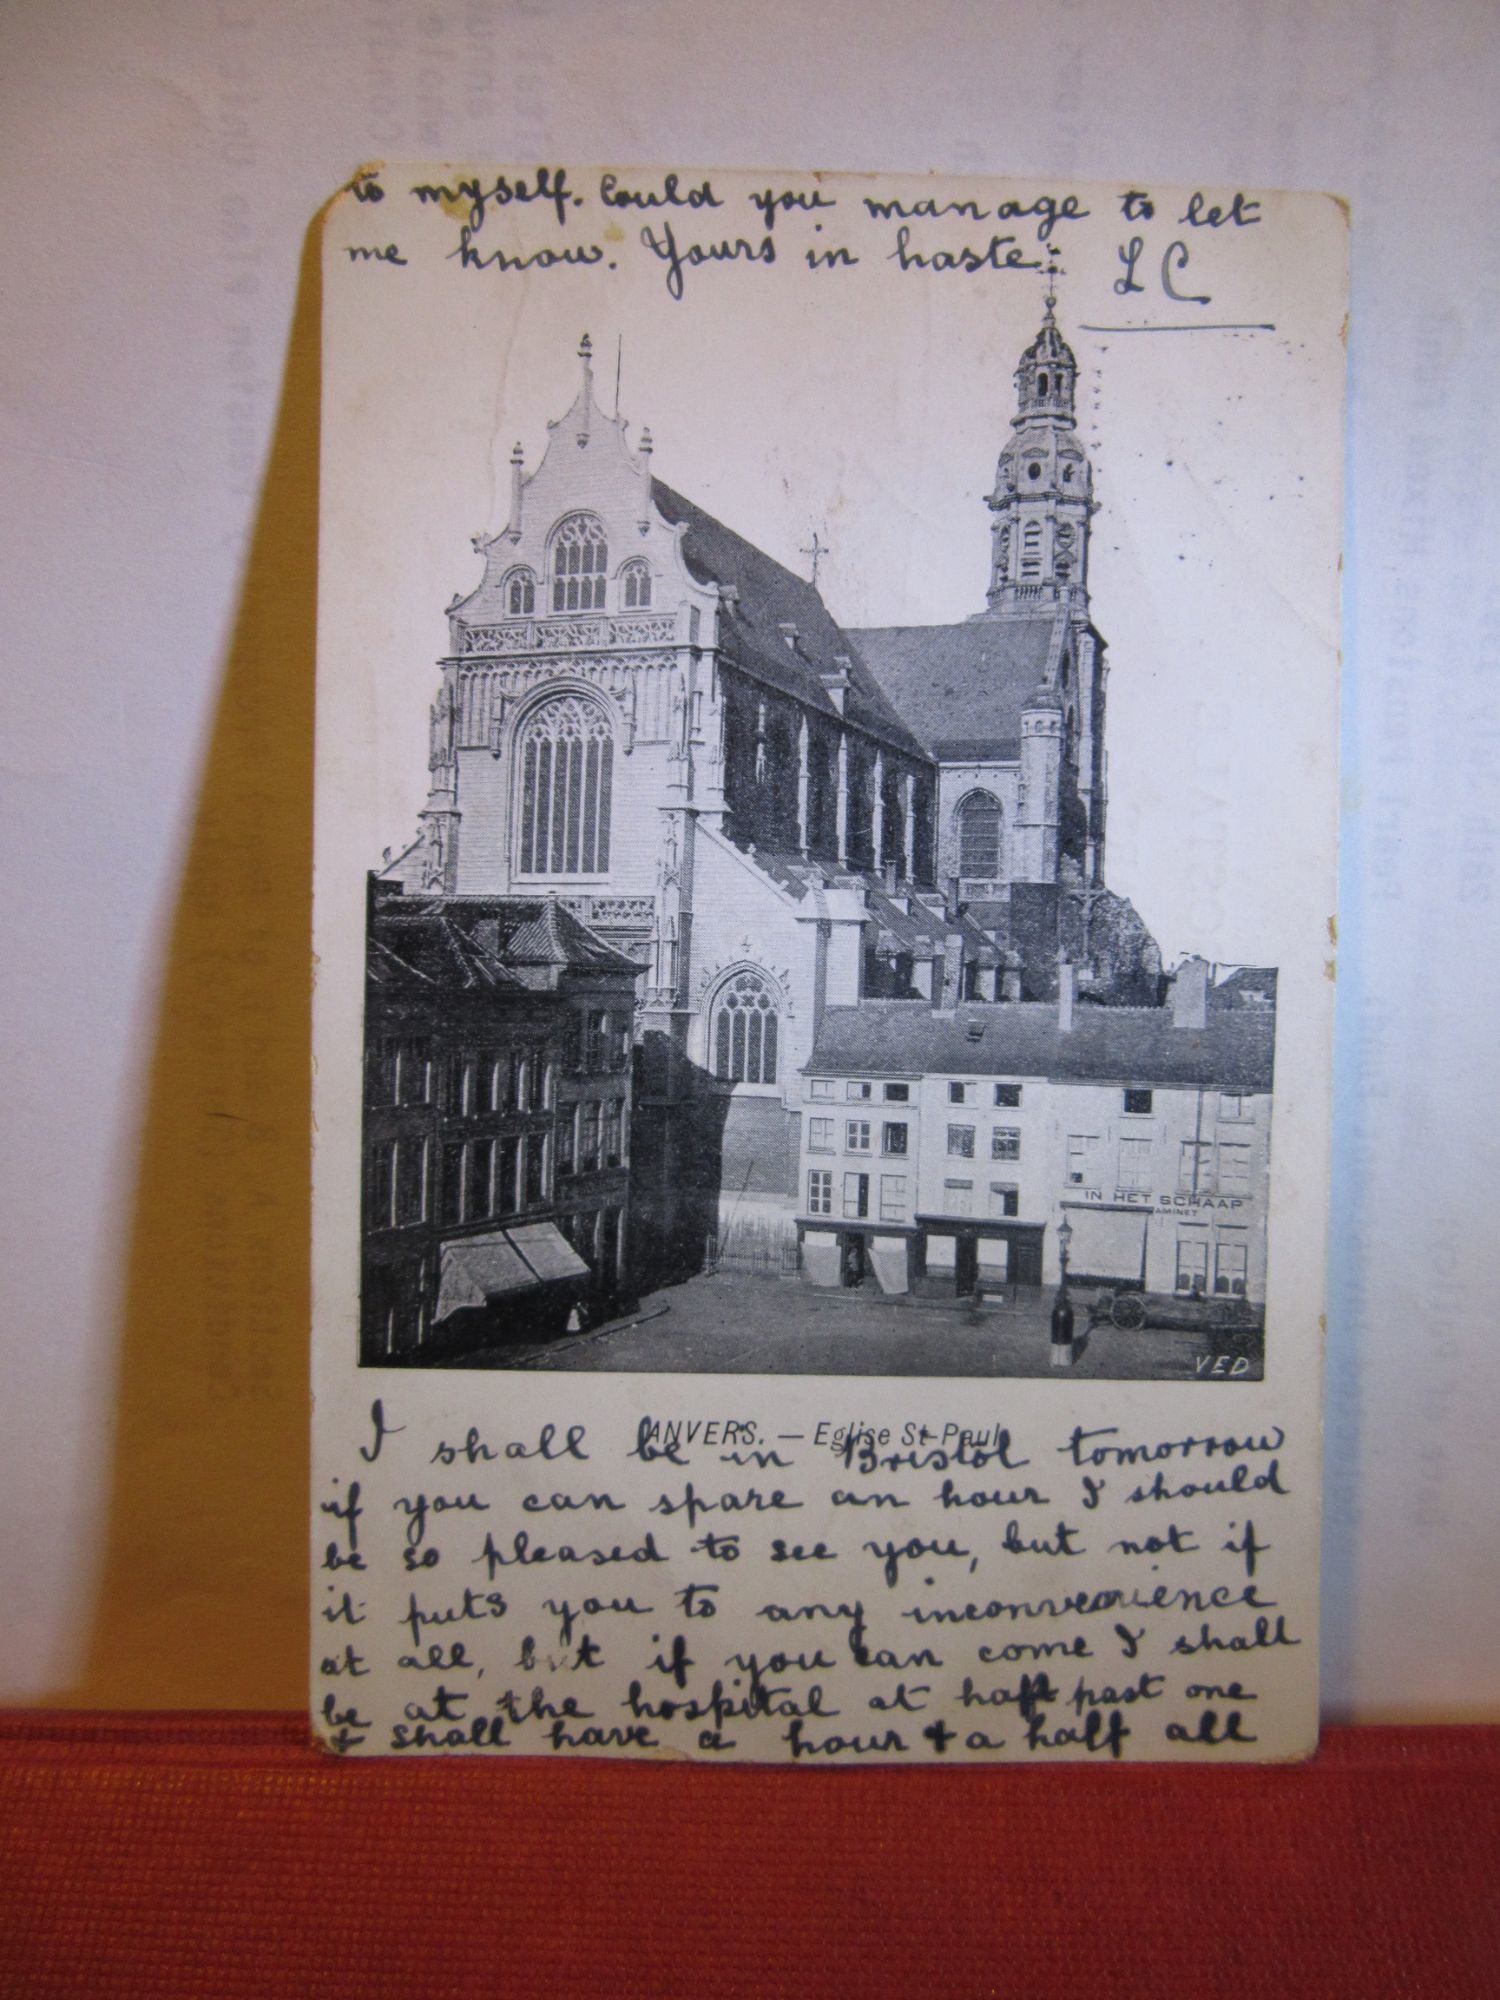 to myself. Could you manage to let
me know. Yours in haste.
L C
IN HET SCHAAP
AMINET
VED
ANVERS. — Eglise St-Paul
I shall be in Bristol tomorrow
if you can spare an hour I should
be so pleased to see you, but not if
it puts you to any inconvenience
at all, but if you can come I shall
be at the hospital at half past one
& shall have a hour & a half all